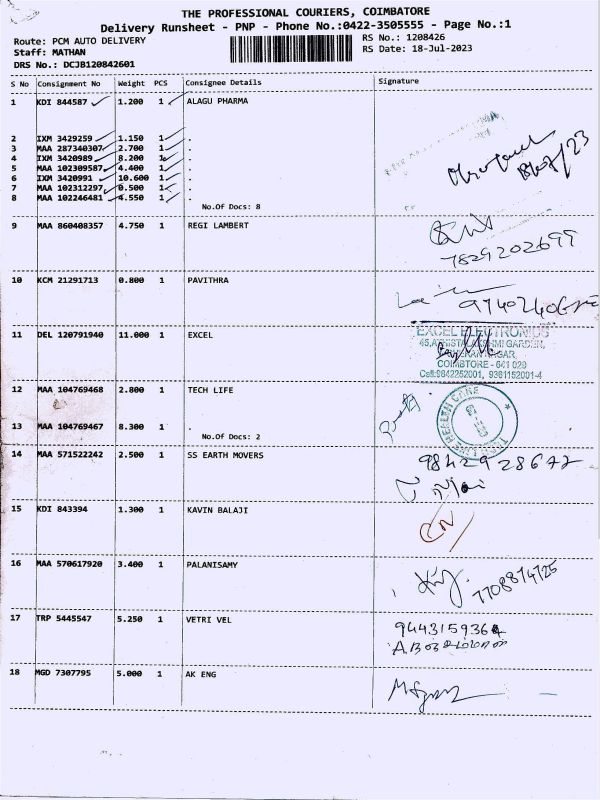 THE PROFESSIONAL COURIERS, COIMBATORE
Delivery Runsheet - PNP - Phone No.:0422-3505555 - Page No.:1
Route: PCM AUTO DELIVERY RS No.: 1208426
Staff: MATHAN RS Date: 18-Jul-2023
DRS No.: DCJB120842601
S No Consignment No Weight PCS Consignee Details Signature
1 KDI 844587 1.200 1 ALAGU PHARMA
2 IXM 3429259 1.150 1 .
3 MAA 287340307 2.700 1 .
4 IXM 3420989 8.200 1 .
5 MAA 102309587 4.400 1 .
6 IXM 3420991 10.600 1 .
7 MAA 102312297 0.500 1 .
8 MAA 102246481 4.550 1 .
No.Of Docs: 8
9 MAA 860408357 4.750 1 REGI LAMBERT
7829202699
10 KCM 21291713 0.800 1 PAVITHRA
11 DEL 120791940 11.000 1 EXCEL
EXCEL ELECTRONICS
45, GARDEN,
NAGAR,
COIMBTORE - 641 029
Cell:9842252001, 9361152001-4
12 MAA 104769468 2.800 1 TECH LIFE
HEALTH CARE
13 MAA 104769467 8.300 1 .
No.Of Docs: 2
14 MAA 571522242 2.500 1 SS EARTH MOVERS
9842928677
15 KDI 843394 1.300 1 KAVIN BALAJI
16 MAA 570617920 3.400 1 PALANISAMY
7708874725
17 TRP 5445547 5.250 1 VETRI VEL
9443159364
18 MGD 7307795 5.000 1 AK ENG